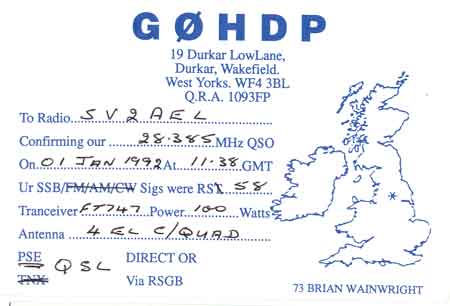 GØHDP
19 Durkar LowLane,
Durkar, Wakefield.
West Yorks. WF4 3BL
Q.R.A. 1093FP
To Radio... SV2AEL
Confirming our 28.385 MHz QSO
On 01 JAN 1992 At 11.38 GMT
Ur SSB/FM/AM/CW Sigs were RST 58
Tranceiver FT747 Power 100 Watts
Antenna 4 EL C/QUAD
PSE QSL DIRECT OR
TNX Via RSGB
73 BRIAN WAINWRIGHT